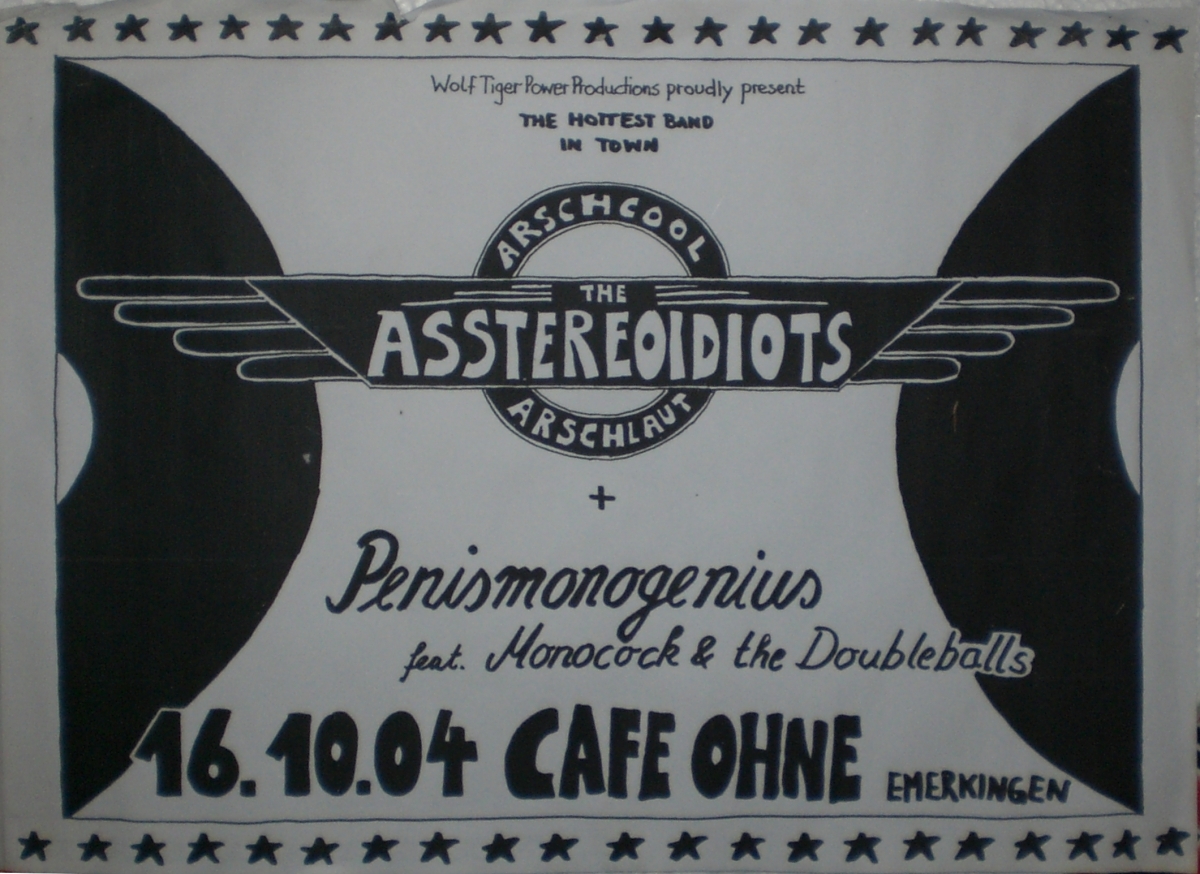 Wolf Tiger Power Productions proudly present
THE HOTTEST BAND
IN TOWN
ARSCHCOOL
THE
ASSTEREOIDIOTS
ARSCHLAUT
+
Penismonogenius
feat. Monocock & the Doubleballs
16.10.04 CAFE OHNE EMERKINGEN